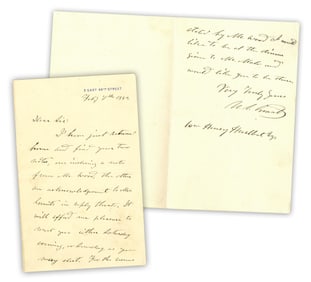 3 EAST 66TH STREET
Feby 7th 1882
Dear Sir:
I have just returned
home and find your two
notes, one inclosing a note
from Mr Wood the other
an acknowledgment to Mr
in reply thereto. It
will afford me pleasure to
meet you either Saturday
evening, or Sunday as you
may elect. For the reasons
stated by Mr Wood I would
like to be at the dinner
given to Mr
would like you to be there
Very Truly Yours
U. S. Grant
Henry